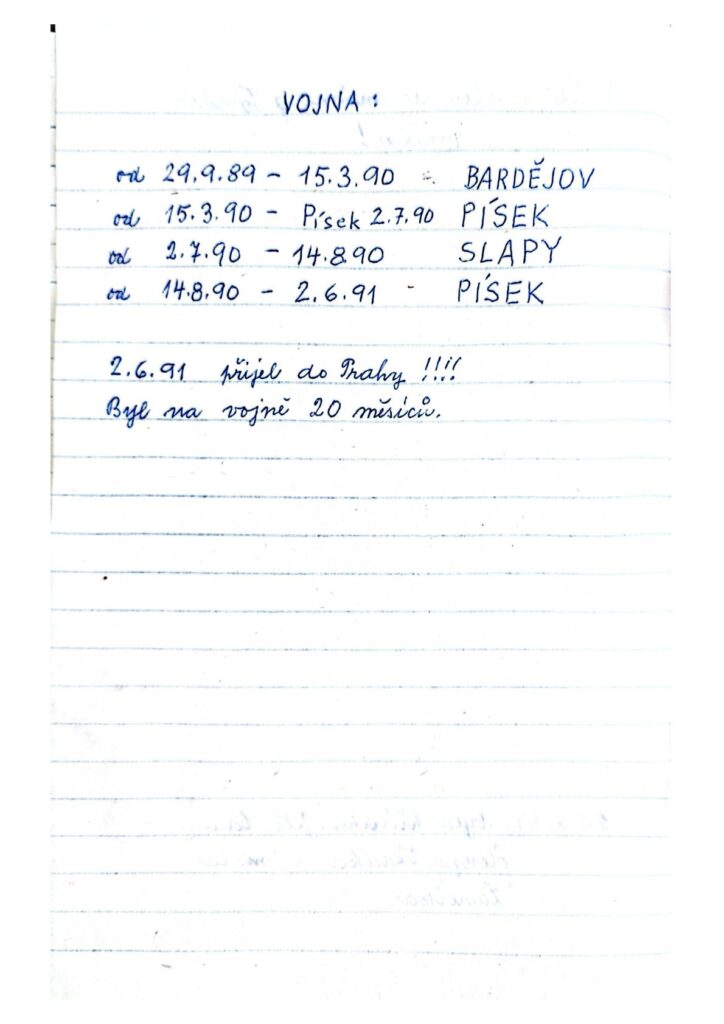 VOJNA:
od 29.9.89 - 15.3.90 - BARDĚJOV
od 15.3.90 - Písek 2.7.90 PÍSEK
od 2.7.90 - 14.8.90 SLAPY
od 14.8.90 - 2.6.91 - PÍSEK
2.6.91 přijel do Prahy !!!!
Byl na vojně 20 měsíců.